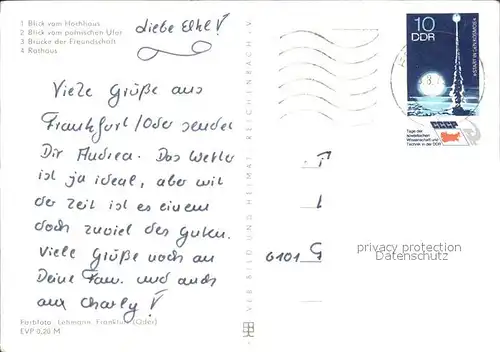 1 Blick vom Hochhaus
2 Blick vom polnischen Ufer
3 Brücke der Freundschaft
4 Rathaus
liebe Elke!
Viele Grüße aus
Frankfurt/Oder sendet
Dir Andrea. Das Wetter
ist ja ideal, aber mit
der Zeit ist es einem
doch zuviel des Guten.
Viele Grüße noch an
Deine Fam. und auch
an Charly!
Farbfoto: Lehmann, Frankfurt (Oder)
EVP 0,20 M
VEB BILD UND HEIMAT REICHENBACH · V.
10
DDR
CCCP
Tage der
sowjetischen
Wissenschaft und
Technik in der DDR
F
L
6101 G
privacy protection
Datenschutz